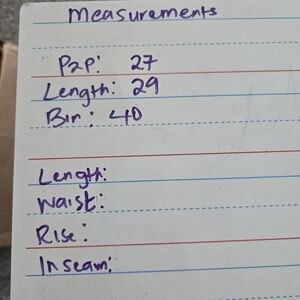 Measurements
P2P: 27
Length: 29
Bin: 40
Length:
Waist:
Rise:
Inseam: